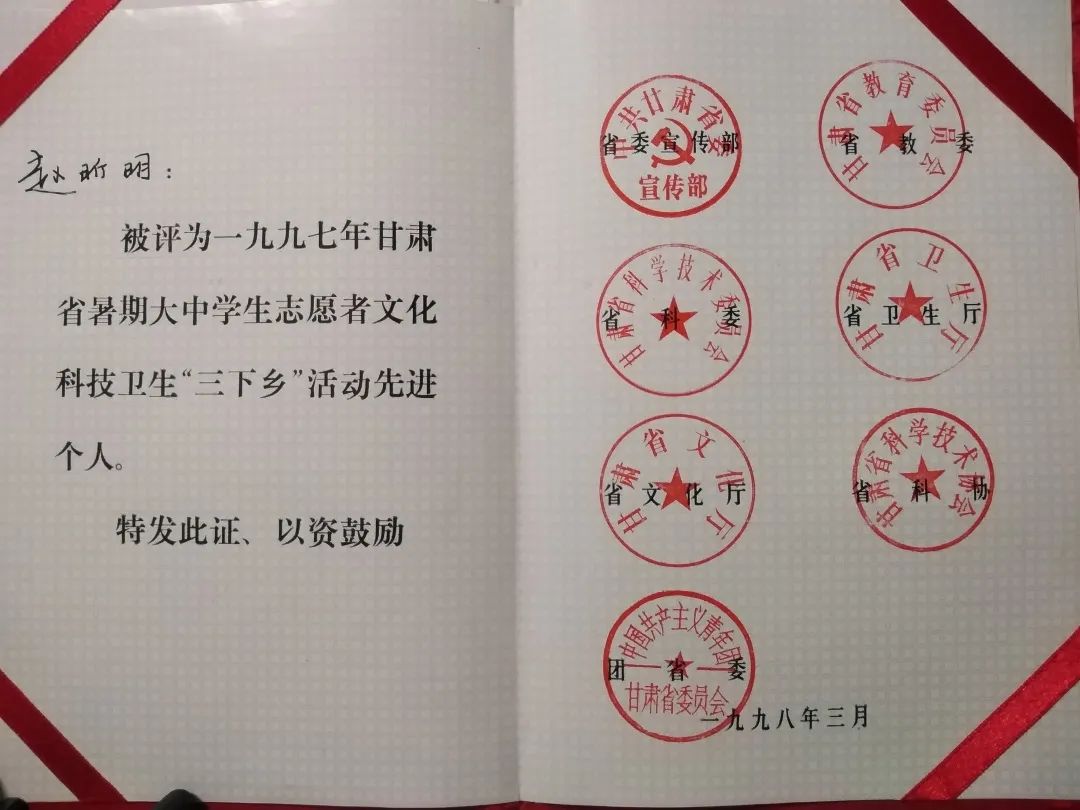 赵昕明：
被评为一九九七年甘肃
省暑期大中学生志愿者文化
科技卫生“三下乡”活动先进
个人。
特发此证、以资鼓励
中共甘肃省委
省委宣传部
宣传部
甘肃省教育委员会
省教委
甘肃省科学技术委员会
省科委
甘肃省卫生厅
省卫生厅
甘肃省文化厅
省文化厅
甘肃省科学技术协会
省科协
中国共产主义青年团
团省委
甘肃省委员会
一九九八年三月